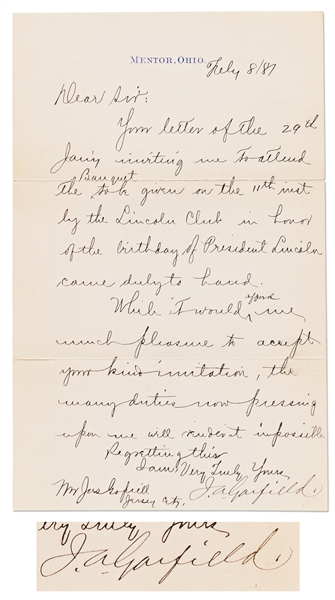 MENTOR, OHIO.
Feby 8/81
Dear Sir:
Your letter of the 29th
Jan'y inviting me to attend
Banquet
the, to be given on the 11th inst
by the Lincoln Club in honor
of the birthday of President Lincoln
came duly to hand.
While it would me
much pleasure to accept
your kind invitation, the
many duties now pressing
upon me will render it impossible
Regretting this
I am Very Truly Yours,
J. A. Garfield.
Mr Jos.
Jersey City.
ery Truly Yours,
J. A. Garfield.